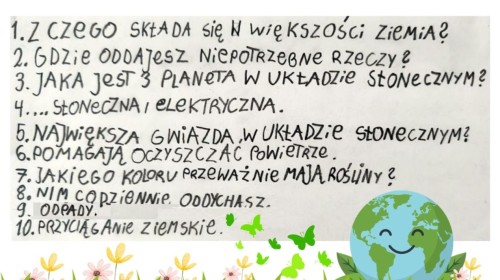 1. Z CZEGO SKŁADA SIĘ W WIĘKSZOŚCI ZIEMIA?
2. GDZIE ODDAJESZ NIEPOTRZEBNE RZECZY?
3. JAKA JEST 3 PLANETA W UKŁADZIE SŁONECZNYM?
4.... SŁONECZNA I ELEKTRYCZNA.
5. NAJWIĘKSZA GWIAZDA W UKŁADZIE SŁONECZNYM?
6. POMAGAJĄ OCZYSZCZAĆ POWIETRZE.
7. JAKIEGO KOLORU PRZEWAŻNIE MAJĄ ROŚLINY?
8. NIM CODZIENNIE ODDYCHASZ.
9. ODPADY.
10. PRZYCIĄGANIE ZIEMSKIE.